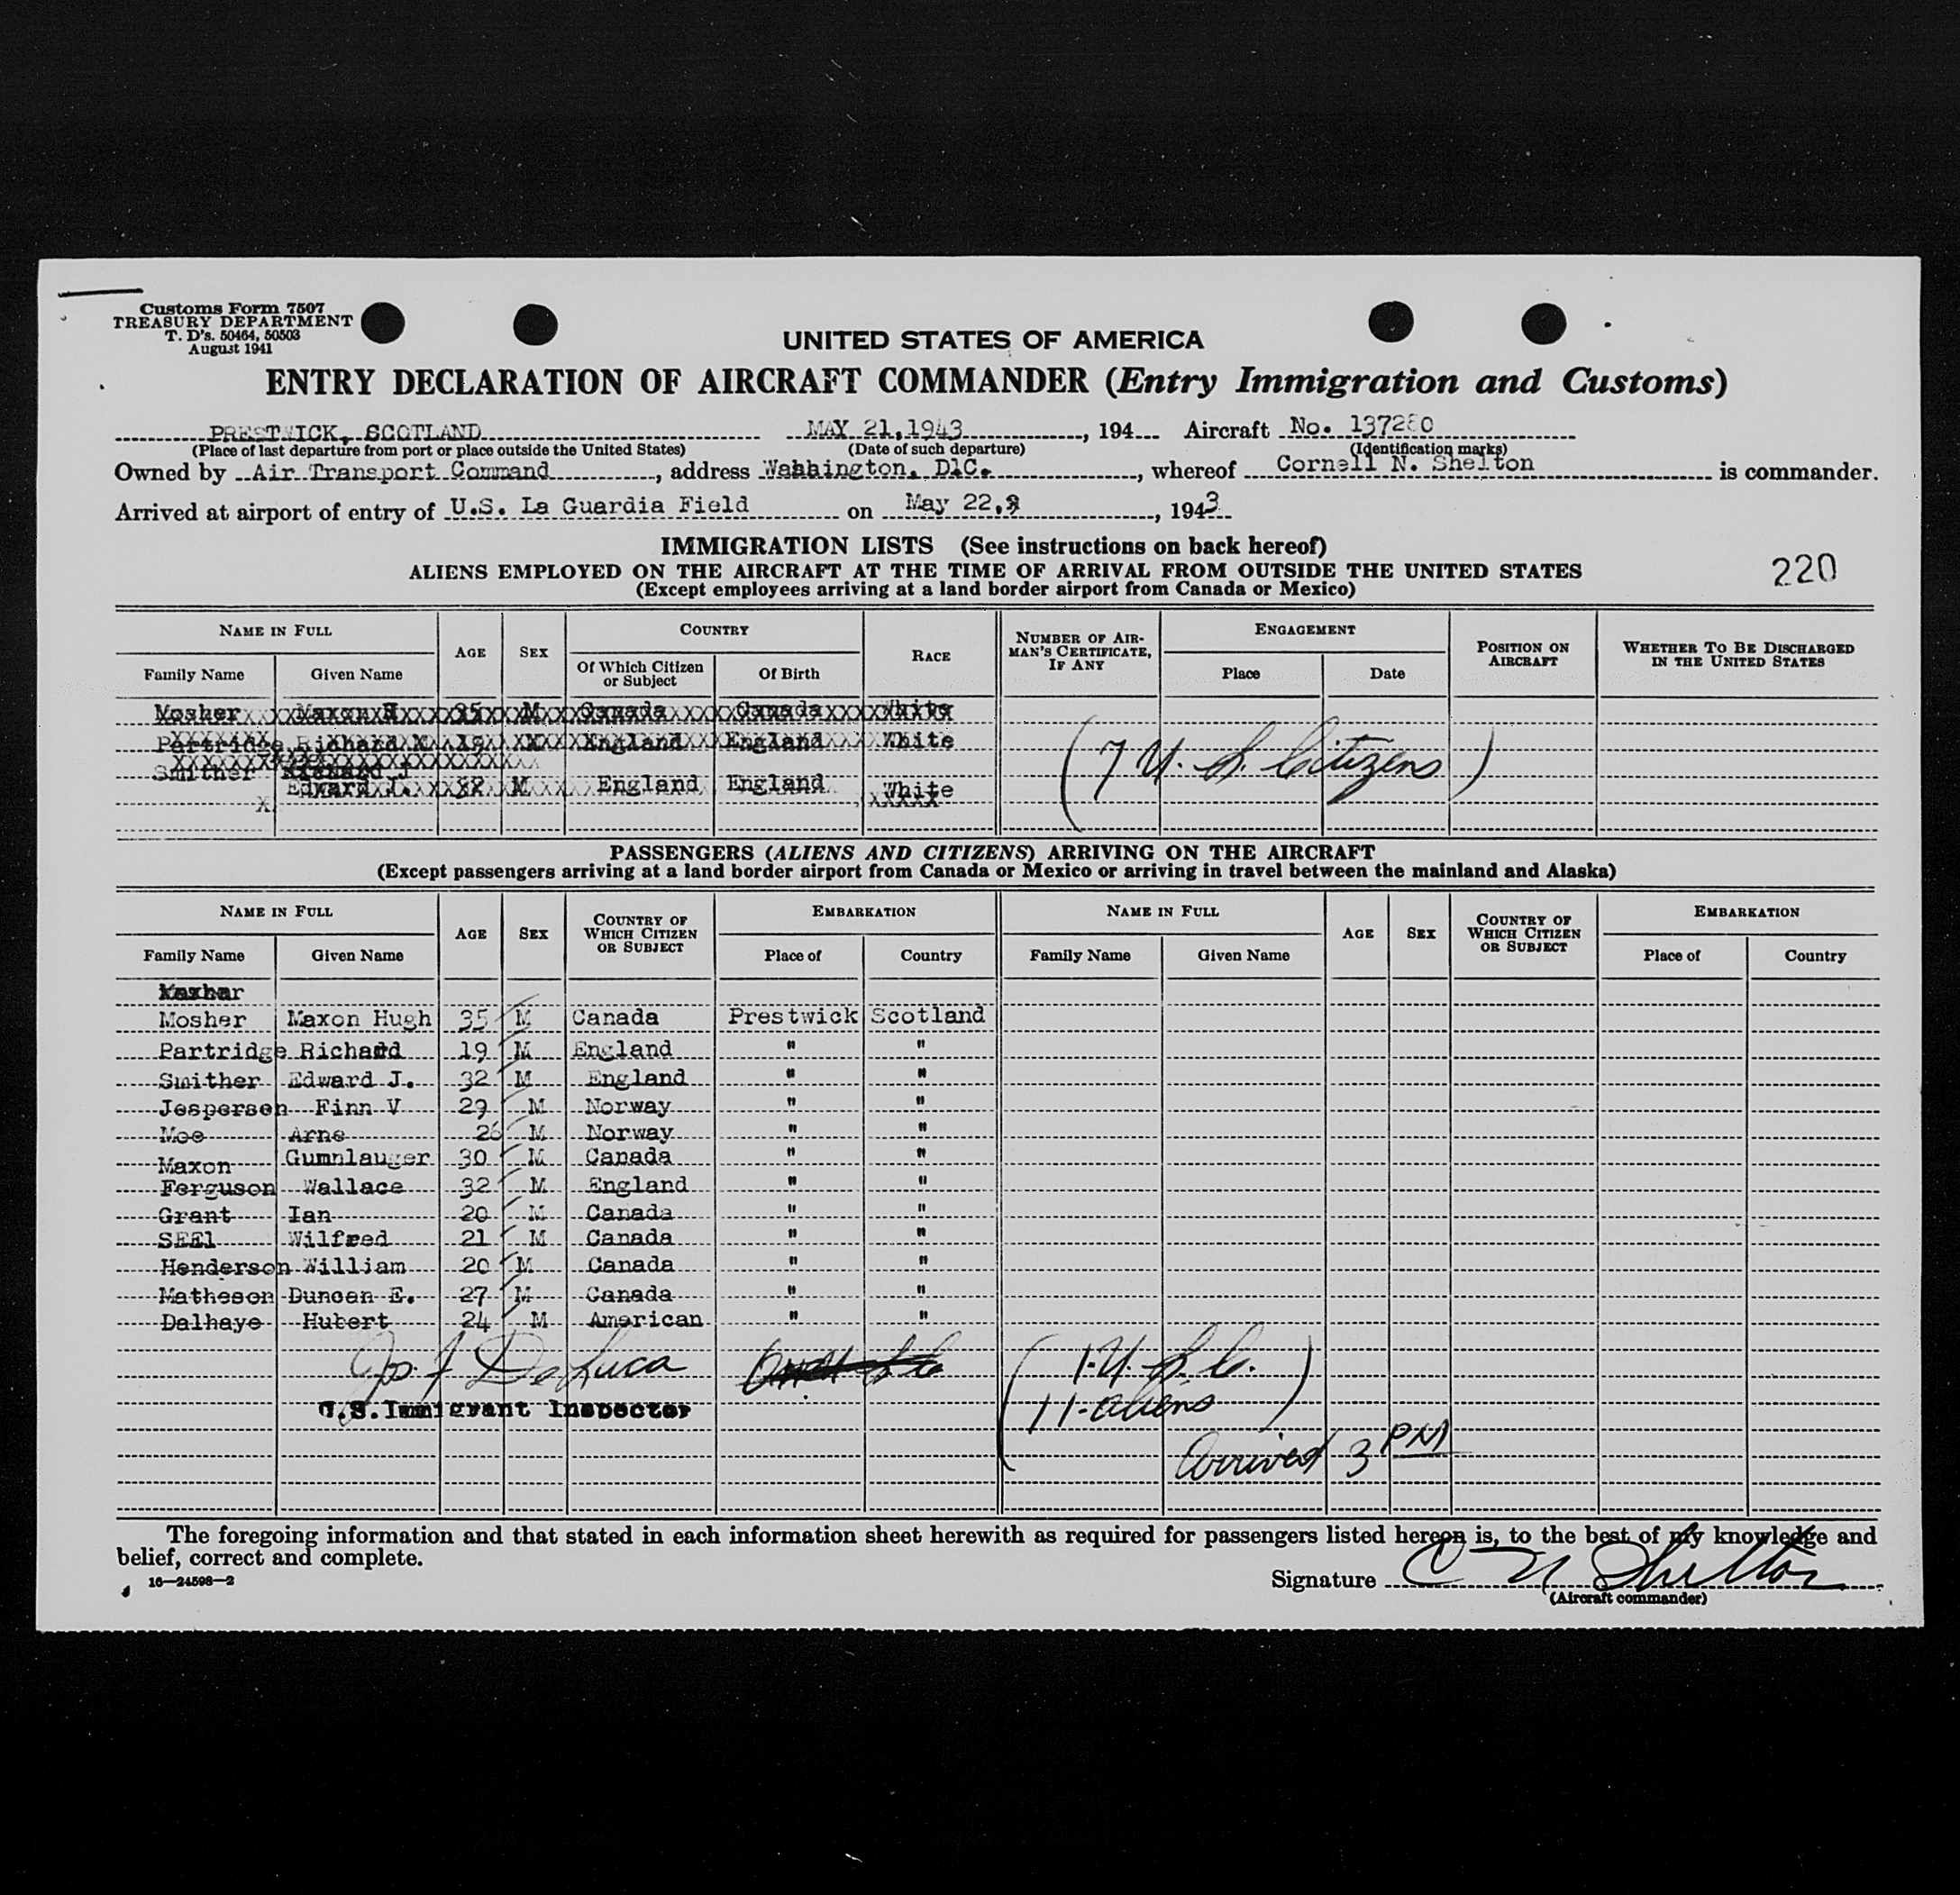 Customs Form 7507
TREASURY DEPARTMENT
T. D's. 50464, 50503
August 1941
UNITED STATES OF AMERICA
ENTRY DECLARATION OF AIRCRAFT COMMANDER (Entry Immigration and Customs)
PRESTWICK, SCOTLAND MAY 21,1943, 194 Aircraft No. 137280
(Place of last departure from port or place outside the United States) (Date of such departure) (Identification marks)
Owned by Air Transport Command, address Washington, D.C., whereof Cornell N. Shelton is commander.
Arrived at airport of entry of U.S. La Guardia Field on May 22, 1943
IMMIGRATION LISTS (See instructions on back hereof)
220
ALIENS EMPLOYED ON THE AIRCRAFT AT THE TIME OF ARRIVAL FROM OUTSIDE THE UNITED STATES
(Except employees arriving at a land border airport from Canada or Mexico)
NAME IN FULL AGE SEX COUNTRY RACE NUMBER OF AIRMAN'S CERTIFICATE, IF ANY ENGAGEMENT POSITION ON AIRCRAFT WHETHER TO BE DISCHARGED IN THE UNITED STATES
Family Name Given Name Of Which Citizen or Subject Of Birth Place Date
Mosher Maxon H 35 M Canada Canada White
Partridge Richard M 19 England England White
Smither Richard J
Edward J. 32 M England England White
(7 U. S. Citizens)
PASSENGERS (ALIENS AND CITIZENS) ARRIVING ON THE AIRCRAFT
(Except passengers arriving at a land border airport from Canada or Mexico or arriving in travel between the mainland and Alaska)
NAME IN FULL AGE SEX COUNTRY OF WHICH CITIZEN OR SUBJECT EMBARKATION NAME IN FULL AGE SEX COUNTRY OF WHICH CITIZEN OR SUBJECT EMBARKATION
Family Name Given Name Place of Country Family Name Given Name Place of Country
Mosher Maxon Hugh 35 M Canada Prestwick Scotland
Partridge Richard 19 M England " "
Smither Edward J. 32 M England " "
Jespersen Finn V 29 M Norway " "
Moe Arne 26 M Norway " "
Maxon Gumnlauger 30 M Canada " "
Ferguson Wallace 32 M England " "
Grant Ian 20 M Canada " "
SEEl Wilfred 21 M Canada " "
Henderson William 20 M Canada " "
Matheson Duncan E. 27 M Canada " "
Dalhaye Hubert 24 M American " "
Jos. J DeLuca (1-U. S. C.
U.S.Immigrant Inspector 11-aliens)
Arrived 3 PM
The foregoing information and that stated in each information sheet herewith as required for passengers listed hereon is, to the best of my knowledge and
belief, correct and complete.
16—24598—2
Signature C N Shelton
(Aircraft commander)